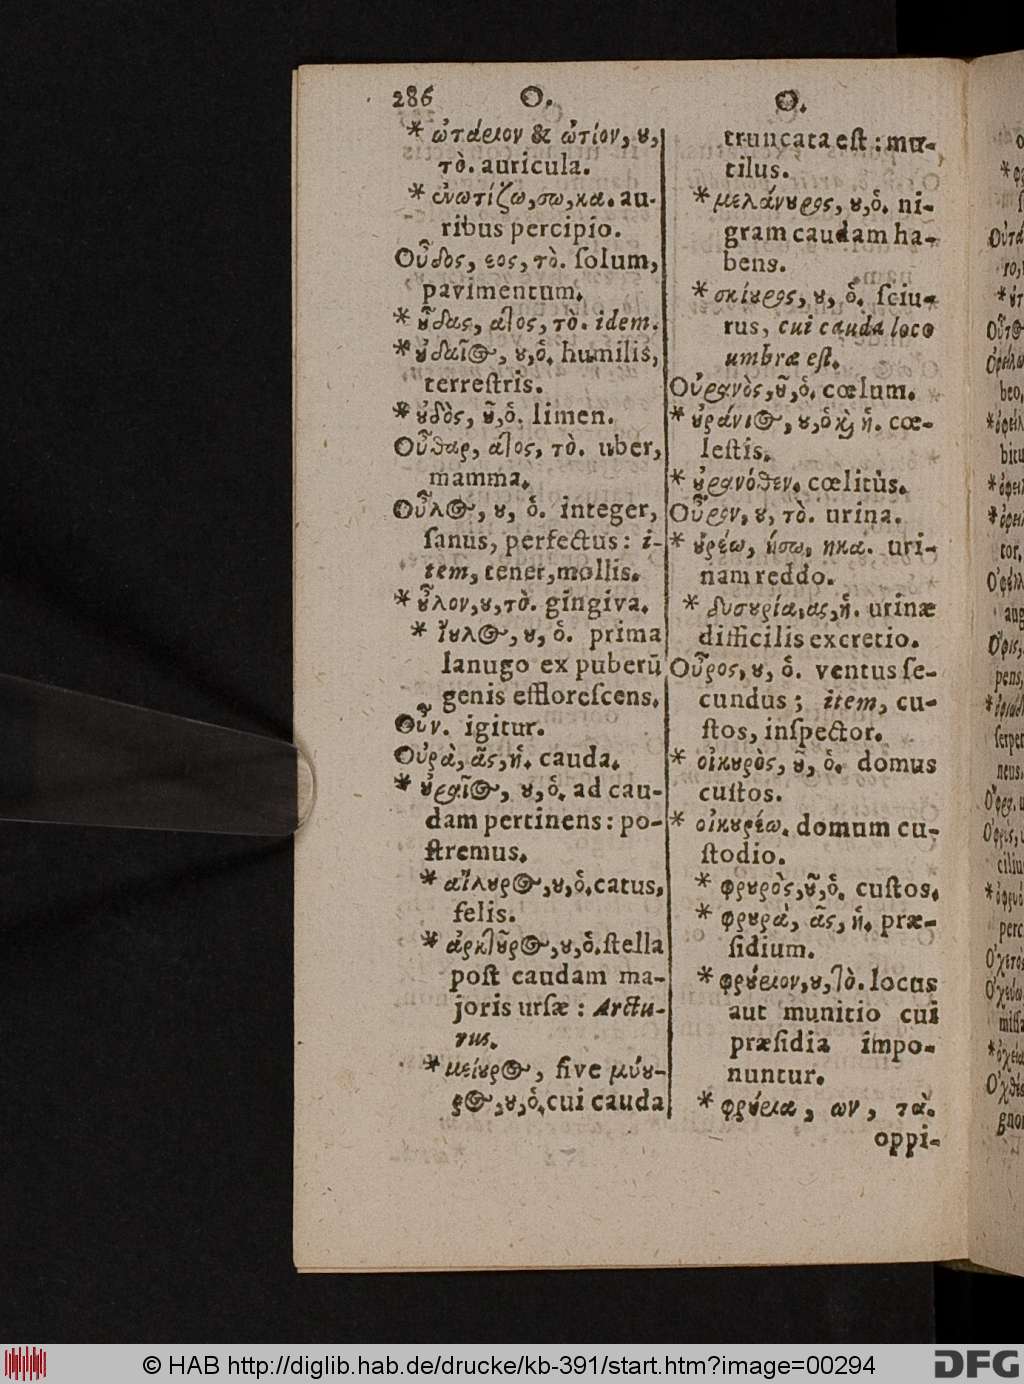 286 O. O.
* ὠτάριον & ὠτίον, ȣ,
τὸ. auricula.
* ἐνωτίζω, σω, κα. au-
ribus percipio.
Οὖδος, εος, τὸ. ſolum,
pavimentum.
* ȣ̓͂δας, ατος, τὸ. idem.
* ȣ̓δαῖος, ȣ, ὁ. humilis,
terreſtris.
* ȣ̓δὸς, ȣ͂, ὁ. limen.
Οὖθαρ, ατος, τὸ. uber,
mamma.
Οὖλος, ȣ, ὁ. integer,
ſanus, perfectus: i-
tem, tener, mollis.
* ȣ̓͂λον, ȣ, τὸ. gingiva.
* ἴȣλος, ȣ, ὁ. prima
lanugo ex puberū
genis effloreſcens.
Οὖν. igitur.
Οὐρὰ, ᾶς, ἡ. cauda.
* ȣ̓ραῖος, ȣ, ὁ. ad cau-
dam pertinens: po-
ſtremus.
* αἴλȣρος, ȣ, ὁ. catus,
felis.
* ἀρκτȣ͂ρος, ȣ, ὁ. ſtella
poſt caudam ma-
joris urſæ: Arctu-
rus.
* μείȣρος, ſive μύȣ-
ρος, ȣ, ὁ. cui cauda
truncata eſt: mu-
tilus.
* μελάνȣρος, ȣ, ὁ. ni-
gram caudam ha-
bens.
* σκίȣρος, ȣ, ὁ. ſciu-
rus, cui cauda loco
umbræ eſt.
Οὐρανὸς, ȣ͂, ὁ. cœlum.
* ȣ̓ράνιος, ȣ, ὁ κὶ ἡ. cœ-
leſtis.
* ȣ̓ρανόθεν. cœlitùs.
Οὖρον, ȣ, τὸ. urina.
* ȣ̓ρέω, ήσω, ηκα. uri-
nam reddo.
* δυσȣρία, ας, ἡ. urinæ
difficilis excretio.
Οὖρος, ȣ, ὁ. ventus ſe-
cundus; item, cu-
ſtos, inſpector.
* οἰκȣρὸς, ȣ͂, ὁ. domus
cuſtos.
* οἰκȣρέω. domum cu-
ſtodio.
* φρȣρὸς, ȣ͂, ὁ. cuſtos.
* φρȣρὰ, ᾶς, ἡ. præ-
ſidium.
* φρȣ́ριον, ȣ, τὸ. locus
aut munitio cui
præſidia impo-
nuntur.
* φρȣ́ρια, ων, τὰ.
oppi-
© HAB http://diglib.hab.de/drucke/kb-391/start.htm?image=00294
DFG